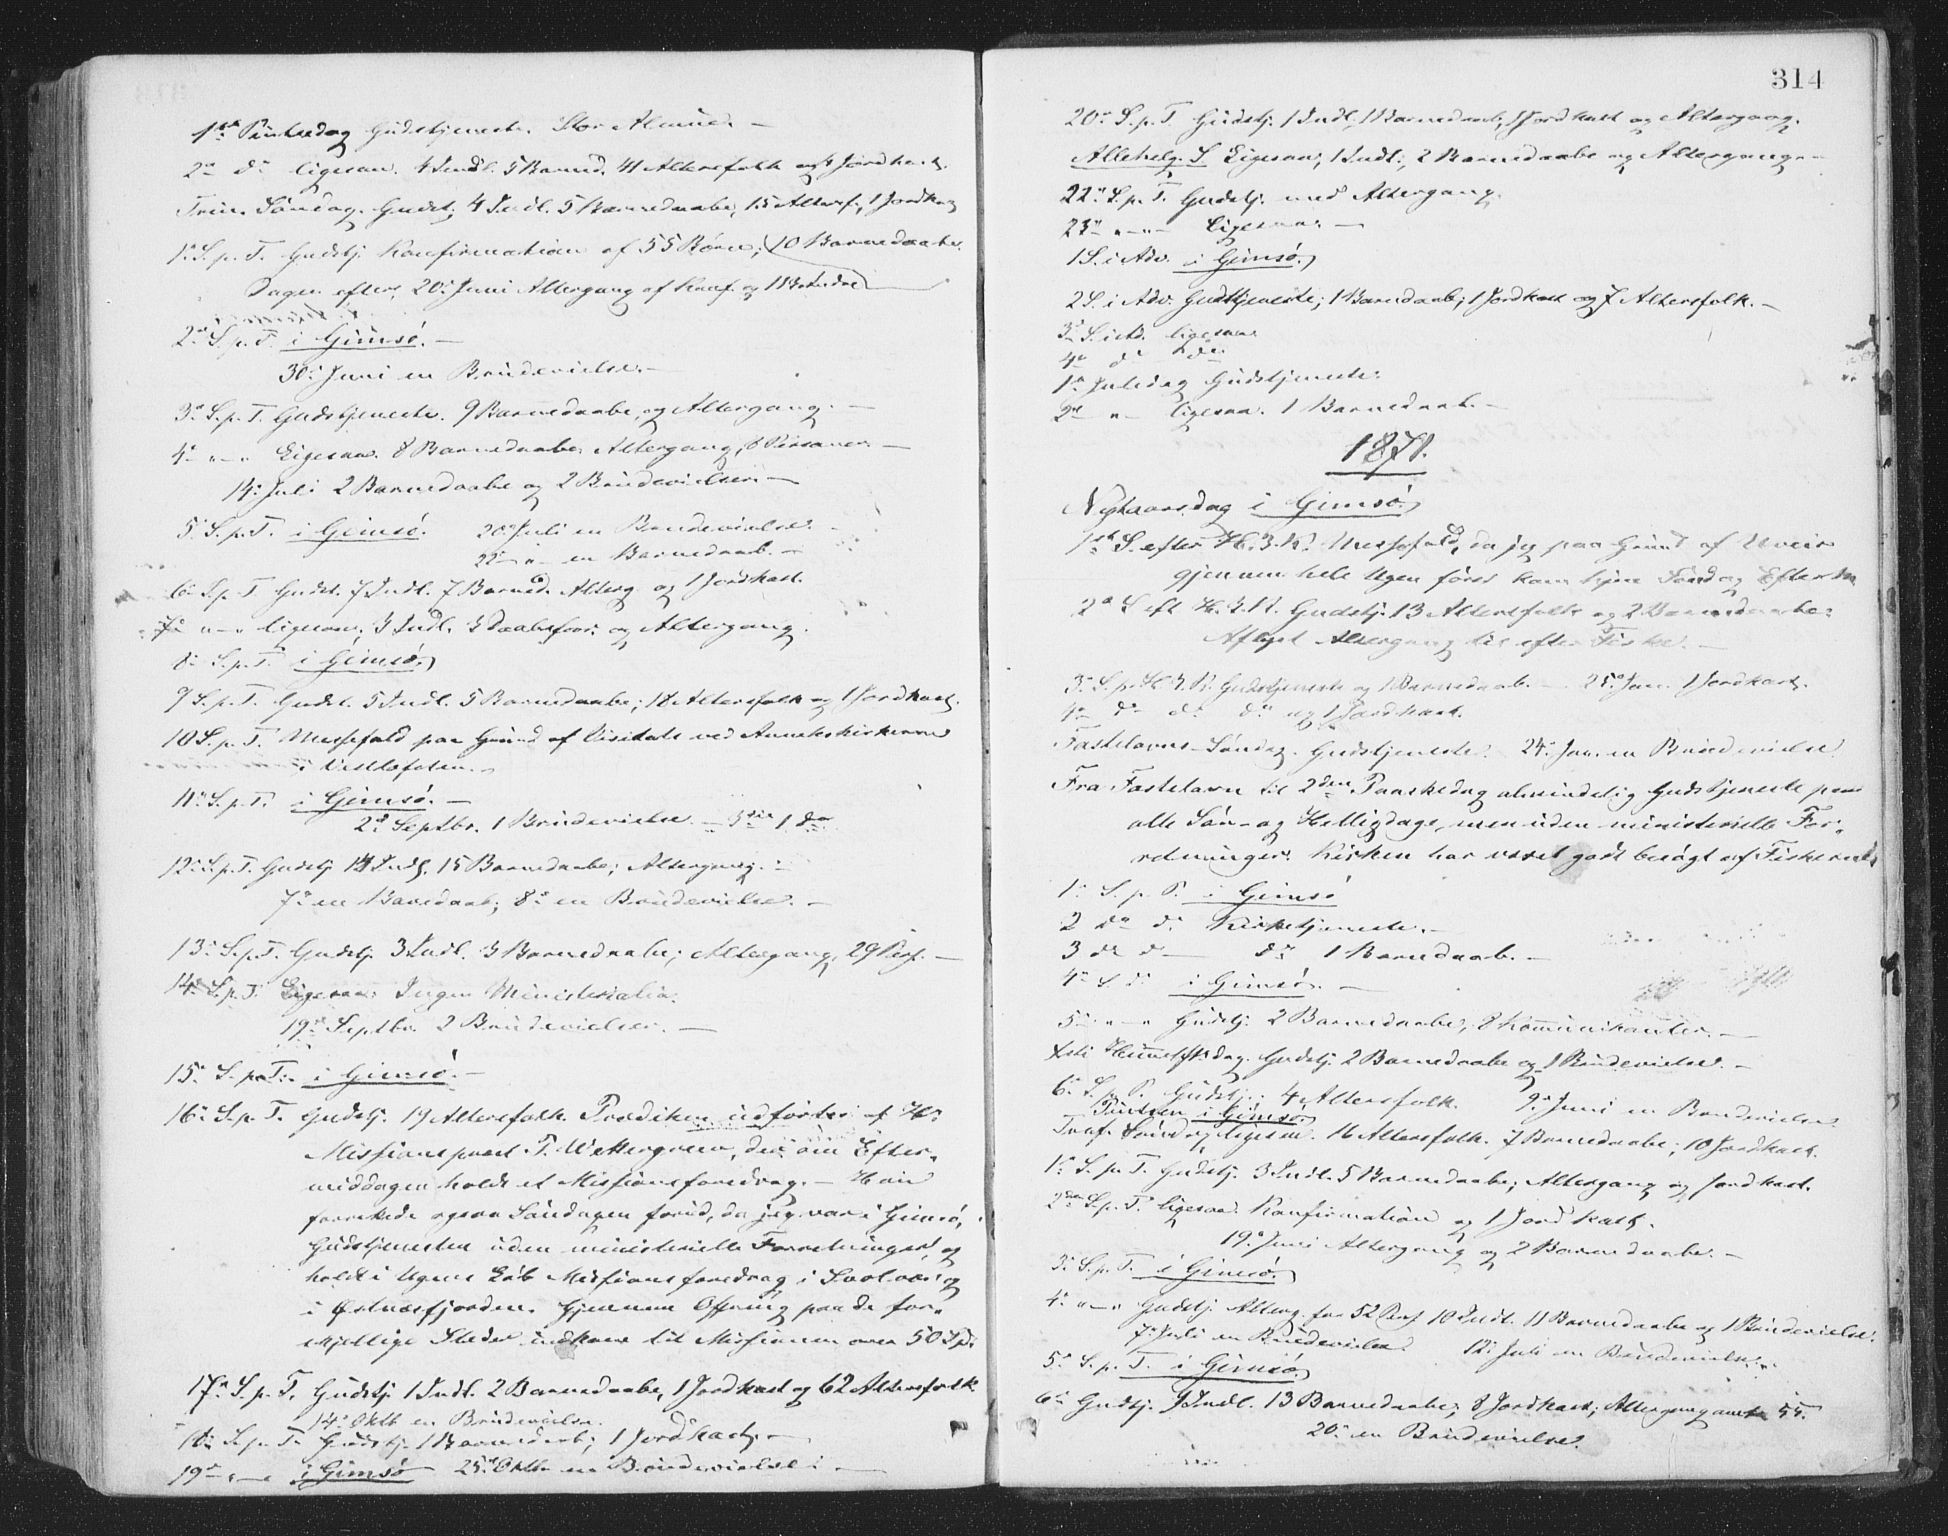 1ste Pintsedag Gudstjeneste. Stor Almue. —
2n do ligesaa. 4 Indl. 5 Barned. 41 Altersfolk og 4 Jordkast.
Trin. Søndag. Gudst. 4 Indl. 5 Barnedaabe, 15 Altersf., 1 Jordkast
1ste S. p. T. Gudstj. Konfirmation af 55 Børn; 10 Barnedaabe.
Dagen efter, 20de Juni Altergang af Konf. og 11 Bønder
2n S. p. T. i Gimsø. —
30te Juni en Brudevielse. —
3die S. p. T. Gudstjeneste. 9 Barnedaabe, og Altergang. —
4de " — " Ligesaa. 8 Barnedaabe. Altergang, 8 Personer. —
14de Juli 2 Barnedaabe og 2 Brudevielser. —
5te S. p. T. i Gimsø. 20de Juli en Brudevielse. —
22de " — en Barnedaab. —
6te S. p. T. Gudst. 7 Indl. 7 Barned. Alterg. og 1 Jordkast.
7de " — " ligesaa. 3 Indl. 3 Daabsforr. og Altergang.
8de S. p. T. i Gimsø.
9 S. p. T. Gudst. 5 Indl. 5 Barnedaabe; 18 Altersfolk og 1 Jordkast.
10 S. p. T. Messefald paa Grund af Visitats ved Annekskirkerne
i Vestlofoten. —
11te S. p. T. i Gimsø. —
2den Septbr. 1 Brudevielse — 5te 1 do
12te S. p. T. Gudstj. 14 Indl. 15 Barnedaabe; Altergang. —
7de en Barnedaab; 8de en Brudevielse. —
13de S. p. T. Gudstj. 3 Indl. 3 Barnedaabe; Altergang, 29 Pers. —
14de S. p. T. Ligesaa. Ingen Ministerialia.
19de Septbr. 2 Brudevielser. —
15de S. p. T. i Gimsø. —
16de S. p. T. Gudstj. 17 Altersfolk. Prædiken udførtes af Hr
Missionsprest T. Wettergreen, der om Efter-
middagen holdt et Missionsforedrag. — Han
forrettede ogsaa Søndagen forud, da jeg var i Gimsø,
Gudstjenesten uden ministerielle Forretninger, og
holdt i Ugens Løb Missionsforedrag i Svolvær og
i Østnæsfjorden. Gjennem Offring paa de for-
skjellige Steder indkom til Missionen over 50 Spd.
17de S. p. T. Gudstj. 1 Indl. 2 Barnedaabe, 1 Jordkast og 62 Altersfolk
14de Oktb en Brudevielse.
18de S. p. T. Gudstj. 1 Barnedaab; 1 Jordkast. —
19de " — " i Gimsø 25de Oktb en Brudevielse. —
314
20de S. p. T. Gudstj. 1 Indl., 1 Barnedaab, 1 Jordkast og Altergang.
Allehelg. S. Ligesaa; 1 Indl., 2 Barnedaabe og Altergang. —
22de S. p. T. Gudstj. med Altergang.
23de " — " Ligesaa. —
1 S. i Adv. i Gimsø.
2 S. i Adv. Gudstjeneste; 1 Barnedaab; 1 Jordkast og 7 Altersfolk. —
3die S. i Ad. ligesaa.
4de do do
1ste Juledag Gudstjeneste.
2den " — ligesaa. 1 Barnedaab. —
1871.
Nytaarsdag i Gimsø.
1ste S. efter H. 3. K. Messefald, da jeg paa Grund af Uveir
gjennem hele Ugen først kom hjem Søndag Efterm.
2den S. eft. H. 3. K. Gudstj. 13 Altersfolk og 2 Barnedaabe.
Aflyst Altergang til efter Fiske. —
3die S. p. H. 3. K. Gudstjeneste og 1 Barnedaab. — 25de Jan. 1 Jordkast.
4de do do do og 1 Jordkast.
Fastelavns-Søndag. Gudstjeneste. 24de Jan. en Brudevielse
Fra Fastelavn til 2den Paaskedag almindelig Gudstjeneste paa
alle Søn- og Helligdage, men uden ministerielle For-
retninger. Kirken har været godt besøgt af Fiskerne.
1ste S. p. P. i Gimsø
2 do do Kirketjeneste. —
3 do do do 1 Barnedaab. —
4de S. do i Gimsø. —
5te " — " Gudstj. 2 Barnedaabe, 8 Kommunikanter. —
Kristi Himmelfartsdag. Gudstj. 2 Barnedaabe og 1 Brudevielse. —
6te S. p. P. Gudstj.; 4 Altersfolk. 9de Juni en Brudevielse
Pintsen i Gimsø
Tref. Søndag ligesaa. 16 Altersfolk. 7 Barnedaabe; 10 Jordkast.
1ste S. p. T. Gudstj. 3 Indl. 5 Barnedaabe; Altergang og Jordkast.
2den S. p. T. ligesaa. Konfirmation og 1 Jordkast.
19de Juni Altergang og 2 Barnedaabe. —
3die S. p. T. i Gimsø.
4de " — " Gudstj. Alterg. for 52 Pers. 10 Indl. 11 Barnedaabe og 1 Brudevielse.
7de Juli en Brudevielse 12te Juli en Brudevielse.
5te S. p. T. i Gimsø.
6te Gudstj. 9 Indl. 13 Barnedaabe; 8 Jordkast; Altergang 55.
20de en Brudevielse.